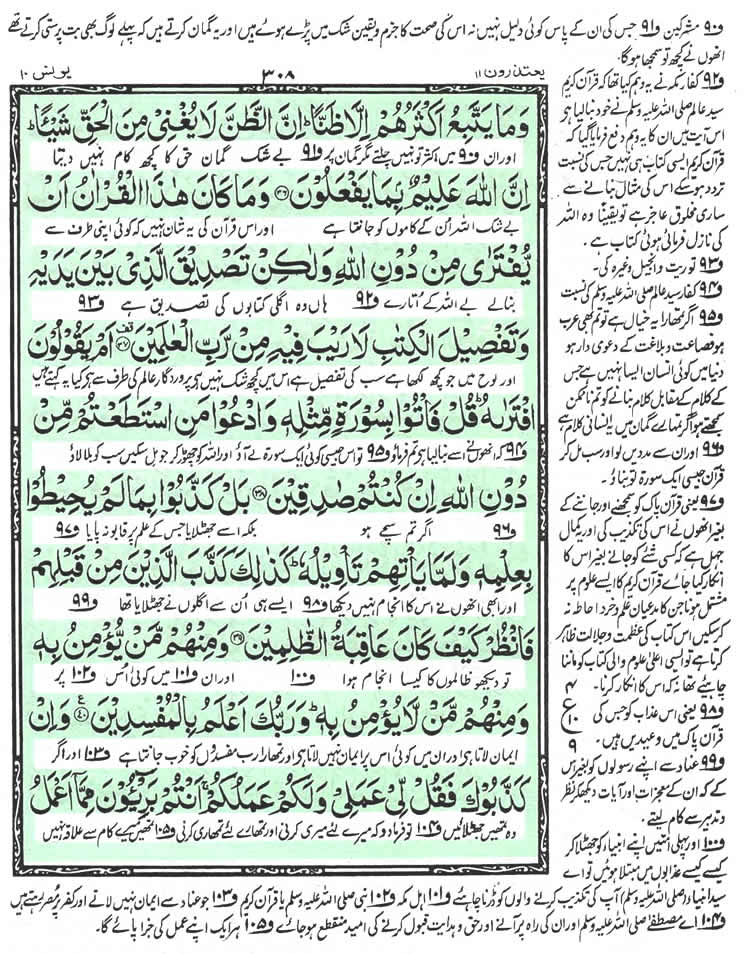 و۹۰ مشرکین و۹۱ جس کی ان کے پاس کوئی دلیل نہیں نہ اس کی صحت کا جزم و یقین شک میں پڑے ہوئے ہیں اور یہ گمان کرتے ہیں کہ پہلے لوگ بھی بت پرستی کرتے تھے
انھوں نے کچھ تو سمجھا ہوگا۔
یونس ۱۰
۳۰۸
یعتذرون ۱۱
وَمَا يَتَّبِعُ أَكْثَرُهُمْ إِلَّا ظَنًّا ۚ إِنَّ الظَّنَّ لَا يُغْنِي مِنَ الْحَقِّ شَيْئًا ۚ
اور ان و۹۰ میں اکثر تو نہیں چلتے مگر گمان پر و۹۱ بے شک گمان حق کا کچھ کام نہیں دیتا
إِنَّ اللهَ عَلِيمٌ بِمَا يَفْعَلُونَ ۝۳۶ وَمَا كَانَ هٰذَا الْقُرْاٰنُ اَنْ
بے شک اللہ اُن کے کاموں کو جانتا ہے اور اس قرآن کی یہ شان نہیں کہ کوئی اپنی طرف سے
يُّفْتَرٰى مِنْ دُوْنِ اللهِ وَلٰكِنْ تَصْدِيْقَ الَّذِىْ بَيْنَ يَدَيْهِ
بنالے بے اللہ کے اُتارے و۹۲ ہاں وہ اگلی کتابوں کی تصدیق ہے و۹۳
وَتَفْصِيْلَ الْكِتٰبِ لَا رَيْبَ فِيْهِ مِنْ رَّبِّ الْعٰلَمِيْنَ ۝۳۷ اَمْ يَقُوْلُوْنَ
اور لوح میں جو کچھ لکھا ہے سب کی تفصیل ہے اس میں کچھ شک نہیں ہے پروردگار عالم کی طرف سے ہے کیا یہ کہتے ہیں
افْتَرٰىهُ ۭ قُلْ فَاْتُوْا بِسُوْرَةٍ مِّثْلِهٖ وَادْعُوْا مَنِ اسْتَطَعْتُمْ مِّنْ
و۹۴ کہ انھوں نے اسے بنا لیا ہے تم فرماؤ و۹۵ تو اس جیسی کوئی ایک سورۃ لے آؤ اور اللہ کو چھوڑ کر جو مل سکیں سب کو بلا لاؤ
دُوْنِ اللهِ اِنْ كُنْتُمْ صٰدِقِيْنَ ۝۳۸ بَلْ كَذَّبُوْا بِمَا لَمْ يُحِيْطُوْا
و۹۶ اگر تم سچے ہو بلکہ اسے جھٹلایا جس کے علم پر قابو نہ پایا و۹۷
بِعِلْمِهٖ وَلَمَّا يَاْتِهِمْ تَاْوِيْلُهٗ ۭ كَذٰلِكَ كَذَّبَ الَّذِيْنَ مِنْ قَبْلِهِمْ
اور ابھی انھوں نے اس کا انجام نہیں دیکھا و۹۸ ایسے ہی اُن سے اگلوں نے جھٹلایا تھا و۹۹
فَانْظُرْ كَيْفَ كَانَ عَاقِبَةُ الظّٰلِمِيْنَ ۝۳۹ وَمِنْهُمْ مَّنْ يُّؤْمِنُ بِهٖ
تو دیکھو ظالموں کا کیسا انجام ہوا و۱۰۰ اور ان و۱۰۱ میں کوئی اس و۱۰۲ پر
وَمِنْهُمْ مَّنْ لَّا يُؤْمِنُ بِهٖ ۭ وَرَبُّكَ اَعْلَمُ بِالْمُفْسِدِيْنَ ۝۴۰ وَاِنْ
ایمان لاتا ہے اور ان میں کوئی اس پر ایمان نہیں لاتا ہے اور تمھارا رب مفسدوں کو خوب جانتا ہے و۱۰۳ اور اگر
كَذَّبُوْكَ فَقُلْ لِّىْ عَمَلِىْ وَلَكُمْ عَمَلُكُمْ ۚ اَنْتُمْ بَرِيْۤـــُٔوْنَ مِمَّاۤ اَعْمَلُ
وہ تمھیں جھٹلائیں و۱۰۴ تو فرما دو کہ میرے لئے میری کرنی اور تمھارے لئے تمھاری کرنی و۱۰۵ تمھیں میرے کام سے علاقہ نہیں
و۹۲ کفار مکہ نے یہ وہم کیا تھا کہ قرآن کریم
سید عالم صلی اللہ علیہ وسلم نے خود بنا لیا ہے
اس آیت میں ان کا یہ وہم دفع فرمایا گیا کہ
قرآن کریم ایسی کتاب ہی نہیں جس کی نسبت
تردد ہو سکے اس کی مثال بنانے سے
ساری مخلوق عاجز ہے تو یقیناً وہ اللہ
کی نازل فرمائی ہوئی کتاب ہے۔
و۹۳ توریت و انجیل وغیرہ کی۔
و۹۴ کفار سید عالم صلی اللہ علیہ وسلم کی نسبت
و۹۵ اگر تمھارا یہ خیال ہے تو تم بھی عرب
ہو فصاحت و بلاغت کے دعوی دار ہو
دنیا میں کوئی انسان ایسا نہیں ہے جس
کے کلام کے مقابل کلام بنانے کو تم ناممکن
سمجھتے ہو اگر تمھارے گمان میں یہ انسانی کلام ہے
و۹۶ اور ان سے مدد لیں تو اور سب مل کر
قرآن جیسی ایک سورۃ تو بناؤ۔
و۹۷ یعنی قرآن پاک کو سمجھنے اور جاننے کے
بغیر انھوں نے اس کی تکذیب کی اور یہ کمال
جہل ہے کہ کسی شئے کو جانے بغیر اس کا
انکار کیا جائے قرآن کریم کا ایسے علوم پر
مشتمل ہونا جن کا مدعیان علم و خرد احاطہ نہ
کر سکیں اس کتاب کی عظمت و جلالت ظاہر
کرتا ہے تو ایسی اعلیٰ علوم والی کتاب کو ماننا
چاہیئے تھا نہ کہ اس کا انکار کرنا۔
و۹۸ یعنی اس عذاب کو جس کی
قرآن پاک میں وعیدیں ہیں۔
۴
ع
۱۰
۹
و۹۹ عناد سے اپنے رسولوں کو بغیر اس
کے کہ ان کے معجزات اور آیات دیکھ کر نظر
و تدبر سے کام لیتے۔
و۱۰۰ اور پہلی امتیں اپنے انبیاء کو جھٹلا کر
کیسے کیسے عذابوں میں مبتلا ہوئیں تو اے
سید انبیاء (صلی اللہ علیہ وسلم) آپ کی تکذیب کرنے والوں کو ڈرنا چاہئے و۱۰۱ اہل مکہ و۱۰۲ نبی صلی اللہ علیہ وسلم یا قرآن کریم و۱۰۳ جو عناد سے ایمان نہیں لاتے اور کفر پر مصر رہتے ہیں
و۱۰۴ اے مصطفےٰ صلی اللہ علیہ وسلم اور ان کی راہ پر آنے اور حق و ہدایت قبول کرنے کی امید منقطع ہو جائے و۱۰۵ ہر ایک اپنے عمل کی جزا پائے گا۔